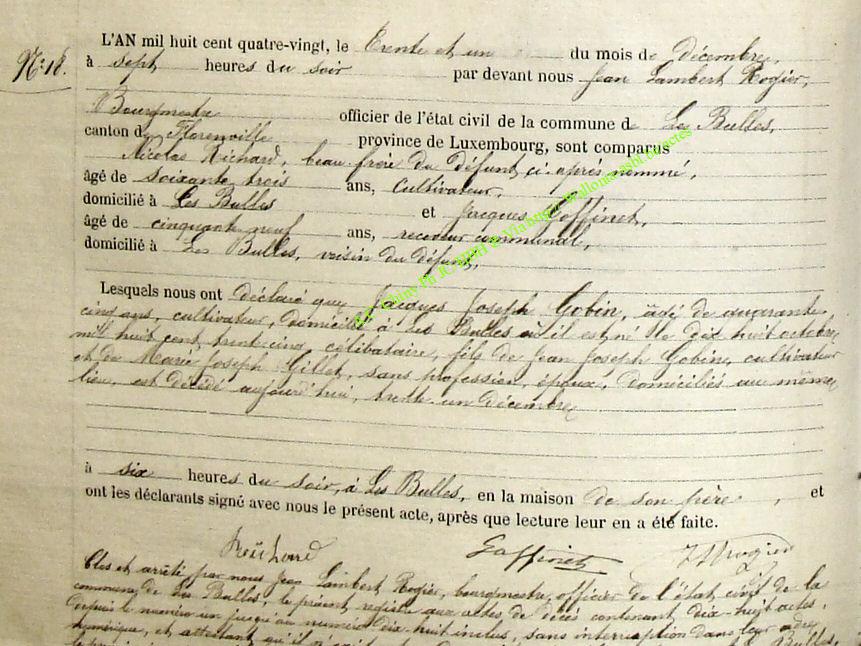 L'AN mil huit cent quatre-vingt, le trente et un du mois de décembre,
N° 18. à sept heures du soir par devant nous Jean Lambert Rogier,
Bourgmestre officier de l'état civil de la commune de Les Bulles,
canton de Florenville province de Luxembourg, sont comparus
Nicolas Richard, beau-frère du défunt ci-après nommé,
âgé de soixante trois ans, cultivateur,
domicilié à Les Bulles et Jacques Goffinet,
âgé de cinquante neuf ans, receveur communal,
domicilié à Les Bulles, voisin du défunt,
Lesquels nous ont déclaré que Jacques Joseph Gobin, âgé de quarante
cinq ans, cultivateur, domicilié à Les Bulles où il est né le dix huit octobre
mil huit cent trente cinq, célibataire, fils de Jean Joseph Gobin, cultivateur
et de Marie Joseph Gillet, sans profession, époux, domiciliés au même
lieu, est décédé aujourd'hui, trente un décembre
à six heures du soir, à Les Bulles, en la maison de son père, et
ont les déclarants signé avec nous le présent acte, après que lecture leur en a été faite.
Richard Goffinet JLRogier
Clos et arrêté par nous Jean Lambert Rogier, bourgmestre, officier de l'état civil de la
commune de Les Bulles, le présent registre aux actes de décès contenant dix-huit actes,
depuis le numéro un jusqu'au numéro dix-huit inclus, sans interruption dans leur ordre
numérique, et attestant qu'il n'avait Les Bulles,